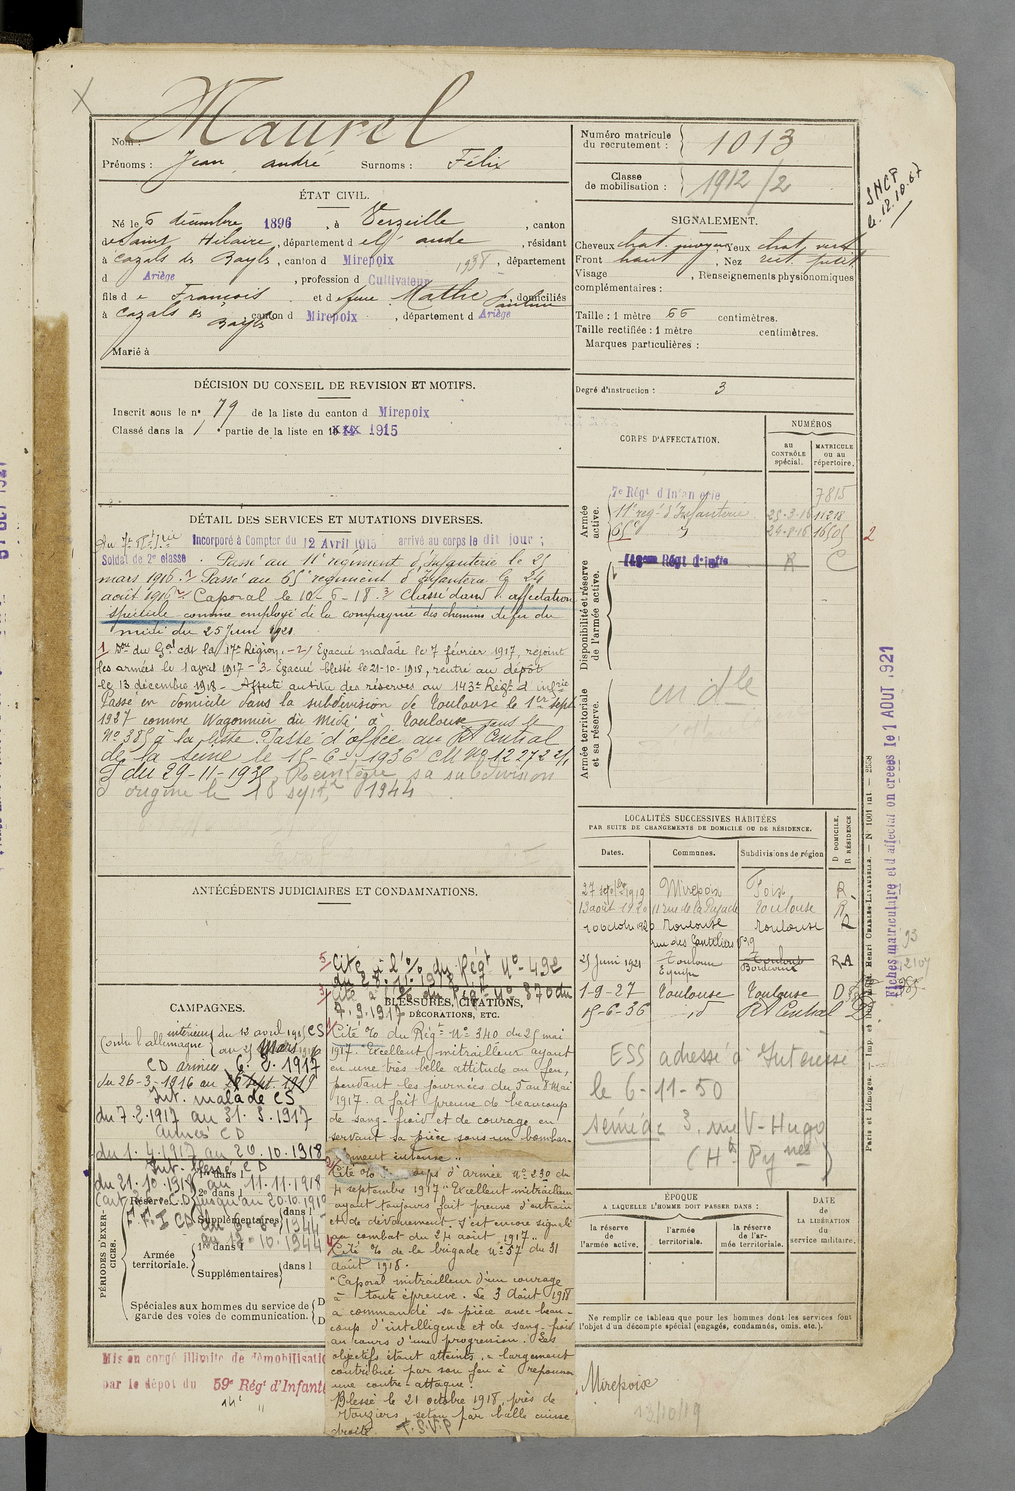 Nom : Maurel
Prénoms : Jean andré Surnoms : Félix
ÉTAT CIVIL.
Né le 6 décembre 1896, à Verzeille, canton
de Saint Hilaire, département de l'aude, résidant
à Cazals des Bayls, canton d Mirepoix 1938, département
d Ariège, profession d Cultivateur
fils de François et de feue Mathe Pauline, domiciliés
à Cazals des Bayls canton d Mirepoix, département d Ariège
Marié à
DÉCISION DU CONSEIL DE REVISION ET MOTIFS.
Inscrit sous le n° 79 de la liste du canton d Mirepoix
Classé dans la 1 partie de la liste en 1915
DÉTAIL DES SERVICES ET MUTATIONS DIVERSES.
Incorporé à Compter du 12 Avril 1915 arrivé au corps le dit jour ;
Soldat de 2e classe. Passé au 11e régiment d'Infanterie le 25
mars 1916. 1 Passé au 65e régiment d'Infanterie le 24
août 1916 2 Caporal le 10-6-18. 3 Classé dans l'affectation
spéciale comme employé de la compagnie des chemins de fer du
midi du 25 Juin 1921.
1 Don du Gal cdt la 17e Région. - 2 Evacué malade le 7 février 1917, rejoint
les armées le 1 avril 1917 - 3. Evacué blessé le 21-10-1918, rentré au dépôt
le 13 décembre 1918 - Affecté au titre des réserves au 143e Régt d'infrie
Passé en domicile dans la subdivision de Toulouse le 1er sept
1927 comme Wagonnier du Midi à Toulouse sous le
N° 385 à la liste. Passé d'office au Rt Central
de la Seine le 15-6-1936 CM N° 12272 2/1
du 29-11-1938, Réintègre sa subdivision
d'origine le 18 sept 1944
ANTÉCÉDENTS JUDICIAIRES ET CONDAMNATIONS.
CAMPAGNES.
Contre l'allemagne intérieur du 12 avril 1915 CS
au 25 Mars 1916
CD armées 6. 2. 1917
du 26-3-1916 au 20 Sept. 1919
Int. malade CS
du 7-2-1917 au 31. 3. 1917
Armées CD
du 1. 4. 1917 au 20. 10. 1918
Int. blessé CD
du 21. 10. 1918 au 11. 11. 1918
jusqu'au 20.10.1919
F.F.I CD
1944
10. 1944
PÉRIODES D'EXERCICES.
Réserve.
1re dans l
2e dans l
Supplémentaires dans l
Armée territoriale.
1re dans l
Supplémentaires dans l
Spéciales aux hommes du service de garde des voies de communication.
5 Cité à l'% du Régt N° 492
du 27. 11. 1918
3 Cité à l'% du Régt N° 870 du
7. 9. 1917
BLESSURES, CITATIONS,
DÉCORATIONS, ETC.
1 Cité % du Régt N° 340 du 25 mai
1917. Excellent mitrailleur ayant
eu une très belle attitude au feu,
pendant les journées du 5 au 8 Mai
1917. a fait preuve de beaucoup
de sang-froid et de courage en
servant sa pièce sous un bombar-
dement intense "
2 Cité % corps d'armée n° 230 du
4 septembre 1917 "Excellent mitrailleur
ayant toujours fait preuve d'entrain
et de dévouement. S'est encore signalé
au combat du 24 août 1917 "
4 Cité % de la brigade n° 57 du 31
août 1918.
"Caporal mitrailleur d'un courage
à toute épreuve. Le 3 août 1918
a commandé sa pièce avec beau-
coup d'intelligence et de sang-froid
au cours d'une progression. Les
objectifs étant atteints, a largement
contribué par son feu à repousser
une contre-attaque.
Blessé le 21 octobre 1918, près de
Vouziers, seton par balle cuisse
droite. T.S.V.P
Mis en congé illimité de démobilisation
par le dépôt du 59e Régt d'Infanterie
Numéro matricule du recrutement : 1013
Classe de mobilisation : 1912/2
SNCF
le 12.10.67
SIGNALEMENT.
Cheveux chat. moyen Yeux chat. vert
Front haut, Nez rect. petit
Visage, Renseignements physionomiques
complémentaires :
Taille : 1 mètre 66 centimètres.
Taille rectifiée : 1 mètre centimètres.
Marques particulières :
Degré d'instruction : 3
CORPS D'AFFECTATION.
NUMÉROS
au CONTRÔLE spécial.
MATRICULE ou au répertoire.
Armée active.
7e Régt d'Infanterie 7815
11e regt d'Infanterie 25-3-16 11218
65e d° 24-8-16 16505 2
Disponibilité et réserve de l'armée active.
143eme Régt d'Infie R C
Armée territoriale et sa réserve.
en dle
LOCALITÉS SUCCESSIVES HABITÉES
PAR SUITE DE CHANGEMENTS DE DOMICILE OU DE RÉSIDENCE.
D DOMICILE. R RÉSIDENCE
Dates. Communes. Subdivisions de région
27 septbre 1919 Mirepoix Foix R
13 août 1920 11 rue de la Pujade Toulouse R
10 Octobre 1920 Toulouse Toulouse R
rue des Ganteliers N° 9
25 Juin 1921 Toulouse Toulouse R.A
Equip Bordeaux
1-9-27 Toulouse Toulouse D
15-6-36 id Rt Central D
ESS adressé à Intéressé
le 6-11-50
Séméac 3, rue V-Hugo
(Htes Pynées)
ÉPOQUE
A LAQUELLE L'HOMME DOIT PASSER DANS :
la réserve de l'armée active.
l'armée territoriale.
la réserve de l'armée territoriale.
DATE DE LA LIBÉRATION du service militaire.
Ne remplir ce tableau que pour les hommes dont les services font
l'objet d'un décompte spécial (engagés, condamnés, omis, etc.).
Mirepoix
13/10/19
Fiches matriculaire et d'affectation créées le 1 AOUT 1921
Paris et Limoges. — Imp. et Librairie Milit. Henri Charles-Lavauzelle. — N° 1001